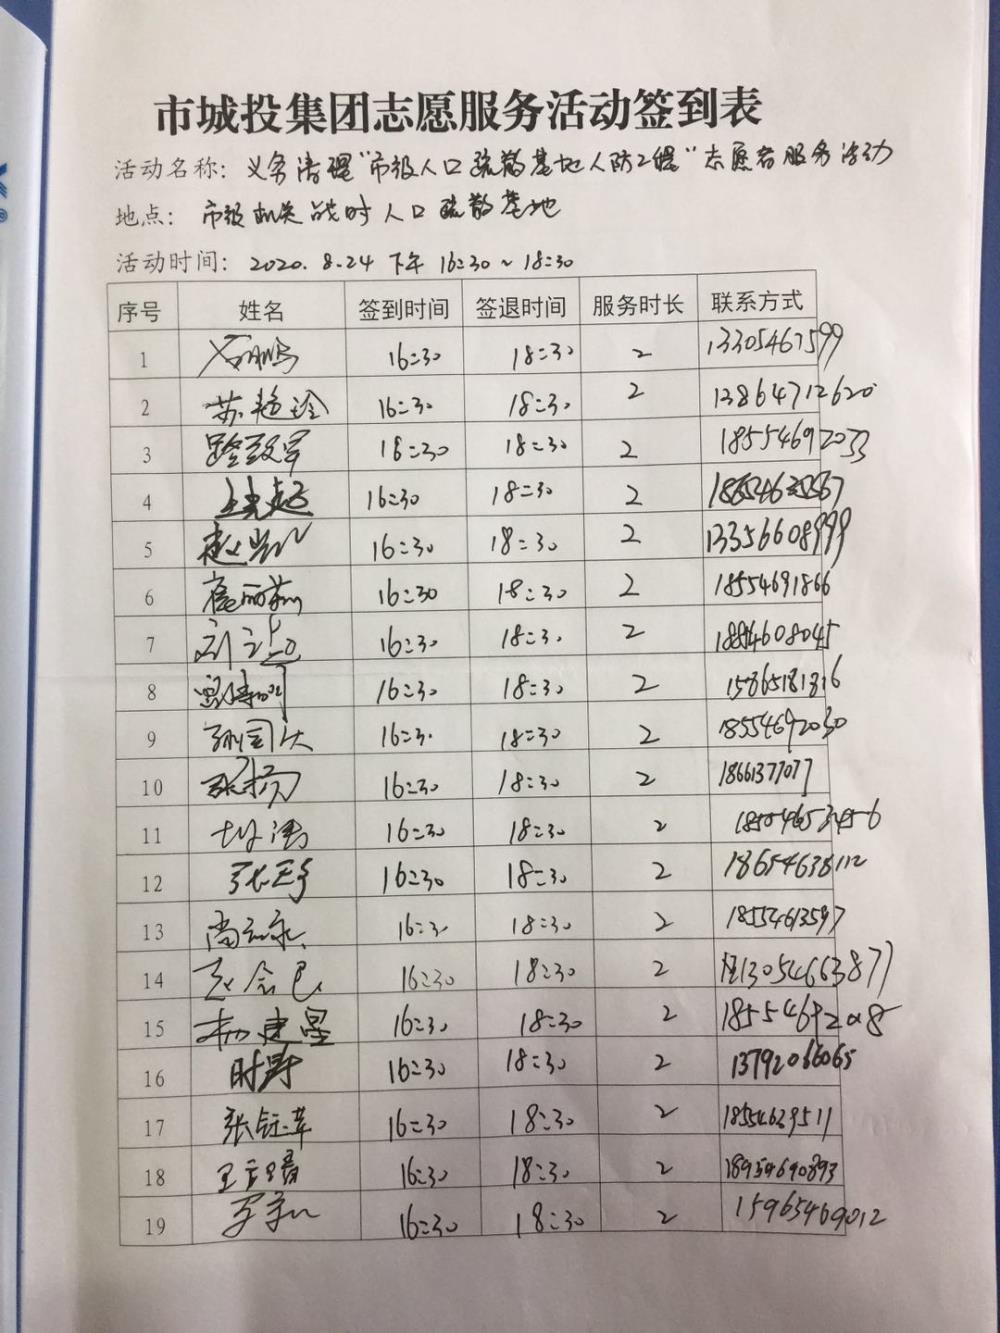 市城投集团志愿服务活动签到表
活动名称：义务清理"市级人口疏散基地人防工程"志愿者服务活动
地点：市级机关战时人口疏散基地
活动时间：2020.8.24 下午 16:30~18:30
序号 姓名 签到时间 签退时间 服务时长 联系方式
1 16:30 18:30 2 13305467599
2 苏艳玲 16:30 18:30 2 13864712620
3 路致军 18:30 18:30 2 18554692033
4 16:30 18:30 2
5 16:30 18:30 2 13356608999
6 16:30 18:30 2 18554691866
7 16:30 18:30 2 18854608045
8 16:30 18:30 2 15865181816
9 孙国庆 16:3 18:30 2 18554692030
10 张扬 16:30 18:30 2 18661377077
11 16:30 18:30 2
12 16:30 18:30 2
13 16:3 18:30 2 18554613597
14 16:30 18:30 2 13054663877
15 杨建星 16:30 18:30 2
16 时野 16:30 18:30 2 13792066065
17 张钰苹 16:30 18:30 2 18554639511
18 16:30 18:30 2 18954690893
19 16:30 18:30 2 15965469012